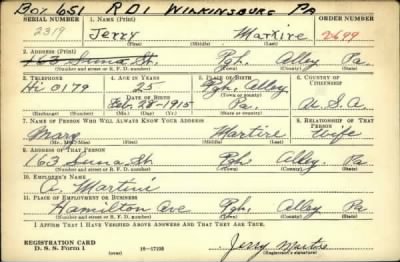 Box 651 RD1 Wilkinsburg Pa
SERIAL NUMBER 1. NAME (Print) ORDER NUMBER
2319 Jerry Martire 2699
(First) (Middle) (Last)
2. ADDRESS (Print)
163 Suna St. Pgh. Alleg Pa.
(Number and street or R. F. D. number) (Town) (County) (State)
3. TELEPHONE 4. AGE IN YEARS 5. PLACE OF BIRTH 6. COUNTRY OF CITIZENSHIP
Hi 0179 25 Pgh. Alleg. U.S.A.
DATE OF BIRTH (Town or county)
Feb. 28-1915 Pa.
(Mo.) (Day) (Yr.) (State or country)
7. NAME OF PERSON WHO WILL ALWAYS KNOW YOUR ADDRESS 8. RELATIONSHIP OF THAT PERSON
Mary Martire Wife
(Mr., Mrs., Miss) (First) (Middle) (Last)
9. ADDRESS OF THAT PERSON
163 Suna St. Pgh. Alleg. Pa
(Number and street or R. F. D. number) (Town) (County) (State)
10. EMPLOYER'S NAME
A. Martini
11. PLACE OF EMPLOYMENT OR BUSINESS
Hamilton Ave Pgh. Alleg Pa
(Number and street or R. F. D. number) (Town) (County) (State)
I AFFIRM THAT I HAVE VERIFIED ABOVE ANSWERS AND THAT THEY ARE TRUE.
REGISTRATION CARD
D. S. S. Form 1 (over) 16-17105 Jerry Martire
(Registrant's signature)